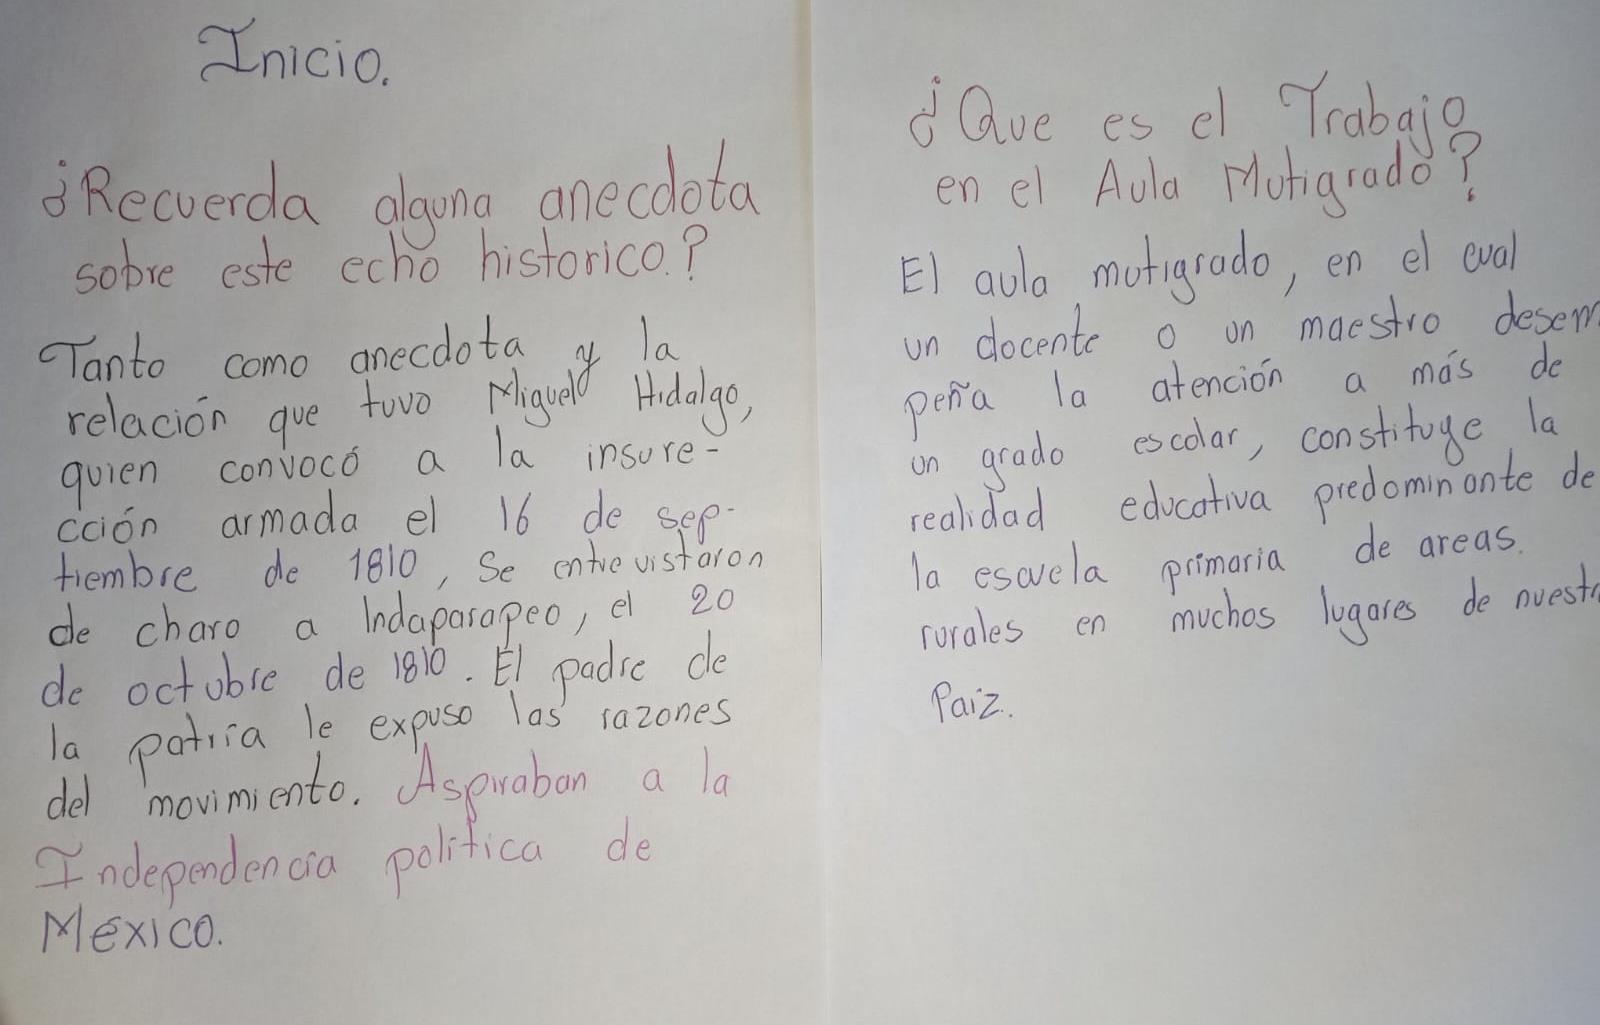 Inicio.
¿Recuerda alguna anecdota
sobre este echo historico.?
Tanto como anecdota y la
relación que tuvo Miguel Hidalgo,
quien convocó a la insure-
cción armada el 16 de sep-
tiembre de 1810, Se entrevistaron
de charo a Indaparapeo, el 20
de octubre de 1810. El padre de
la patria le expuso las razones
del movimiento. Aspiraban a la
Independencia política de
México.
¿Que es el Trabajo
en el Aula Mutigrado?
El aula mutigrado, en el cual
un docente o un maestro desem
peña la atención a más de
un grado escolar, constituye la
realidad educativa predominante de
la escuela primaria de areas.
rurales en muchos lugares de nuestr
Paiz.